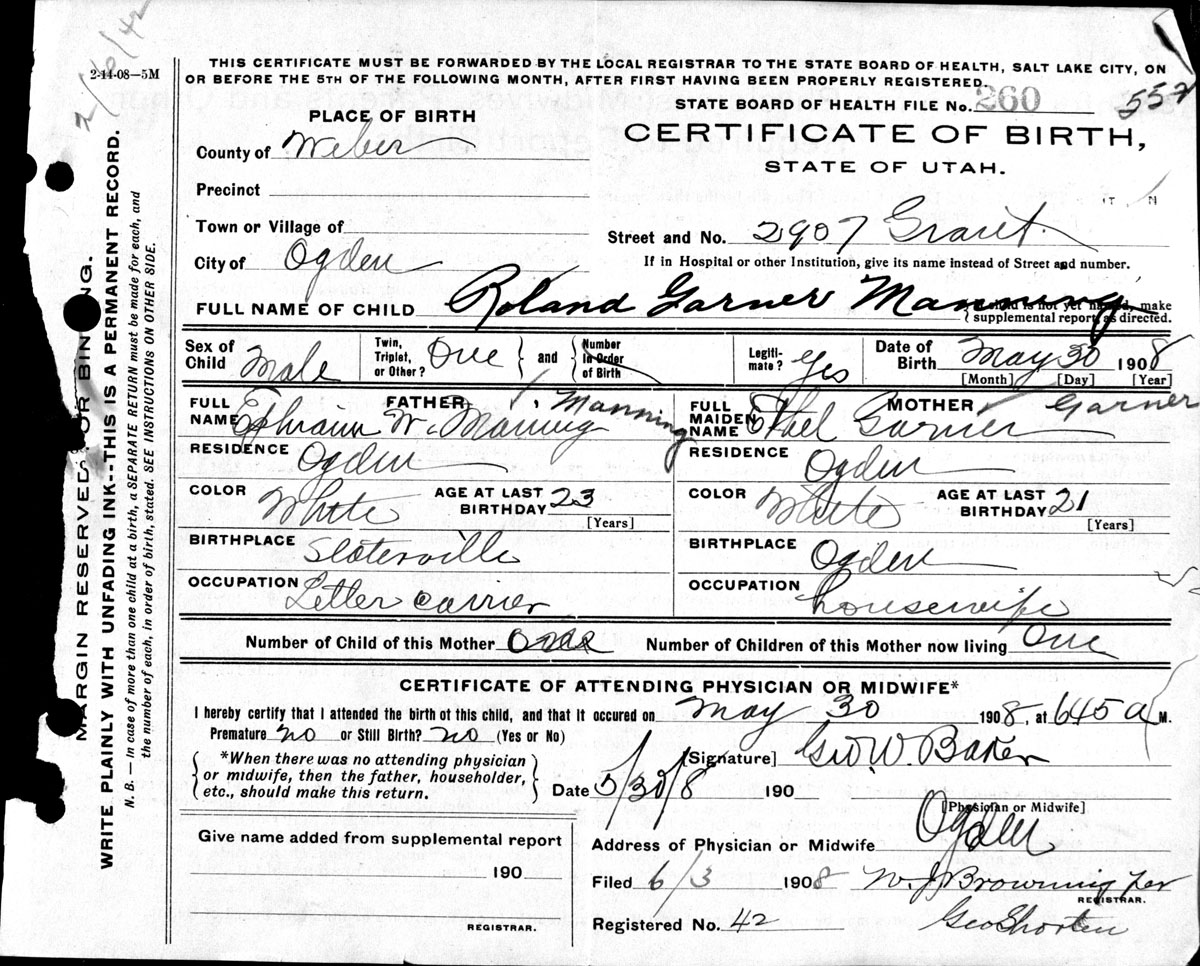 2/16/42
2-14-08—5M
THIS CERTIFICATE MUST BE FORWARDED BY THE LOCAL REGISTRAR TO THE STATE BOARD OF HEALTH, SALT LAKE CITY, ON
OR BEFORE THE 5TH OF THE FOLLOWING MONTH, AFTER FIRST HAVING BEEN PROPERLY REGISTERED.
STATE BOARD OF HEALTH FILE No. 260 557
PLACE OF BIRTH
CERTIFICATE OF BIRTH,
STATE OF UTAH.
County of Weber
Precinct
Town or Village of
Street and No. 2907 Grant.
City of Ogden
If in Hospital or other Institution, give its name instead of Street and number.
FULL NAME OF CHILD Roland Garner Manning
make
supplemental report, as directed.
Sex of Child Male
Twin, Triplet, or Other? One } and { Number in Order of Birth
Legiti- mate? yes
Date of Birth May 30 1908
[Month] [Day] [Year]
FATHER Manning
FULL NAME Ephraim W. Maning
RESIDENCE Ogden
COLOR White AGE AT LAST BIRTHDAY 23
[Years]
BIRTHPLACE Slaterville
OCCUPATION Letter carrier
MOTHER Garner
FULL MAIDEN NAME Ethel Garner
RESIDENCE Ogden
COLOR White AGE AT LAST BIRTHDAY 21
[Years]
BIRTHPLACE Ogden
OCCUPATION housewife
Number of Child of this Mother One Number of Children of this Mother now living One
CERTIFICATE OF ATTENDING PHYSICIAN OR MIDWIFE*
I hereby certify that I attended the birth of this child, and that it occured on May 30 1908, at 645 a M.
Premature? no or Still Birth? no (Yes or No)
*When there was no attending physician
or midwife, then the father, householder,
etc., should make this return.
[Signature] Geo. W. Baker
Date 5/30/8 190
[Physician or Midwife]
Give name added from supplemental report
190
REGISTRAR.
Address of Physician or Midwife Ogden
Filed 6/3 1908 W. J. Browning per
REGISTRAR.
Registered No. 42 Geo Shorten
MARGIN RESERVED FOR BINDING.
WRITE PLAINLY WITH UNFADING INK--THIS IS A PERMANENT RECORD.
N. B. — In case of more than one child at a birth, a SEPARATE RETURN must be made for each, and
the number of each, in order of birth, stated. SEE INSTRUCTIONS ON OTHER SIDE.